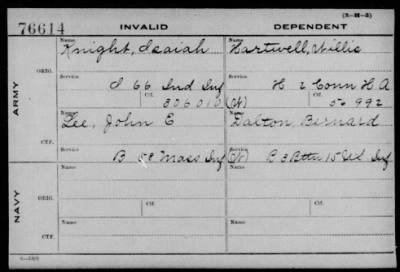 (3-H-3)
76614 INVALID DEPENDENT
Name Name
Knight, Isaiah Hartwell, Willis
ARMY
ORIG. Service Service
I 66 Ind Inf H 2 Conn H A
Ctf. Ctf.
306010 (W) 56992
Name Name
Lee, John E Dalton, Bernard
CTF. Service Service
B 58 Mass Inf (W) B 3 Inf
NAVY
Name Name
ORIG. Ctf. Ctf.
Name Name
CTF.